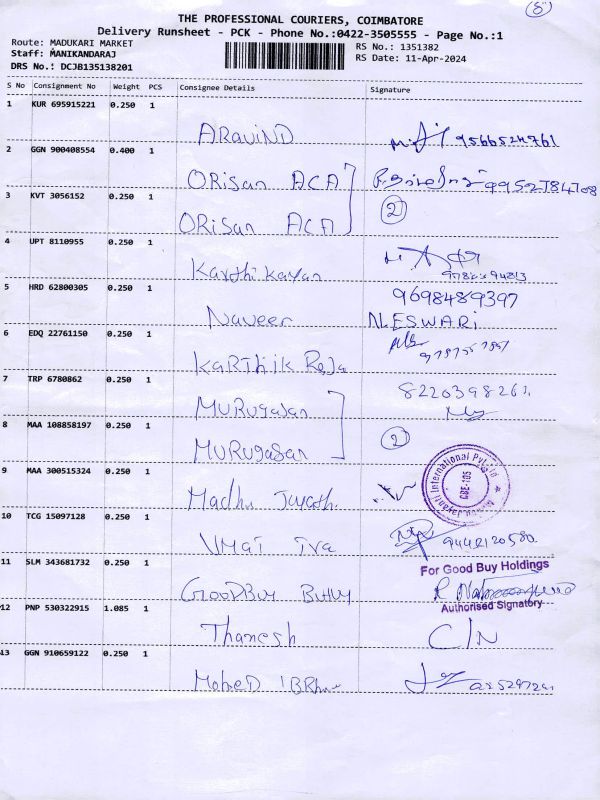 8
THE PROFESSIONAL COURIERS, COIMBATORE
Delivery Runsheet - PCK - Phone No.:0422-3505555 - Page No.:1
Route: MADUKARI MARKET
RS No.: 1351382
Staff: MANIKANDARAJ
RS Date: 11-Apr-2024
DRS No.: DCJB135138201
S No Consignment No Weight PCS Consignee Details Signature
1 KUR 695915221 0.250 1
ARavinD 9566524761
2 GGN 900408554 0.400 1
ORiSan ACA 9952784708
3 KVT 3056152 0.250 1
ORiSan ACA 2
4 UPT 8110955 0.250 1
Karthikayan
5 HRD 62800305 0.250 1
9698489397
Naveer NLESWARi
6 EDQ 22761150 0.250 1
KaRThiK Raja
7 TRP 6780862 0.250 1
8220398261
MURUgaSan
8 MAA 108858197 0.250 1
MURUgaSan 2
9 MAA 300515324 0.250 1
Madhu Jayath
International Pvt. Ltd
CBE-105
10 TCG 15097128 0.250 1
UMaT Tva 9442120580
11 SLM 343681732 0.250 1
For Good Buy Holdings
GOODBuy
Authorised Signatory
12 PNP 530322915 1.085 1
Thanesh C/N
13 GGN 910659122 0.250 1
MohmeD IBRhm